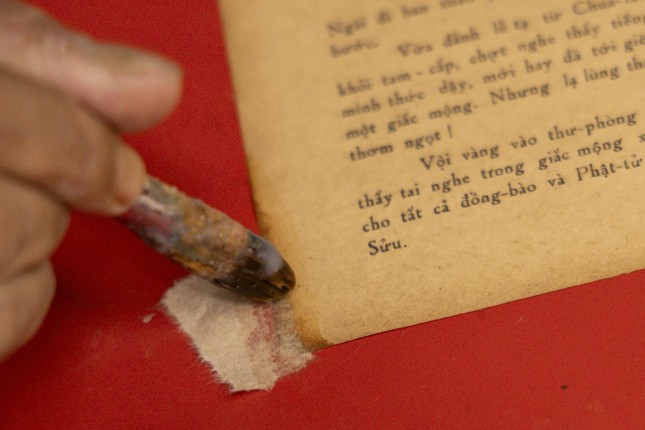 Ngài đi ban
bước. Vừa đảnh lễ tạ từ Chúa-
khỏi tam-cấp, chợt nghe thấy tiếng
mình thức dậy, mới hay đã tới giờ
một giấc mộng. Nhưng lạ lùng
thơm ngọt !
Vội vàng vào thư-phòng
thấy tai nghe trong giấc mộng
cho tất cả đồng-bào và Phật-tử
Sửu.